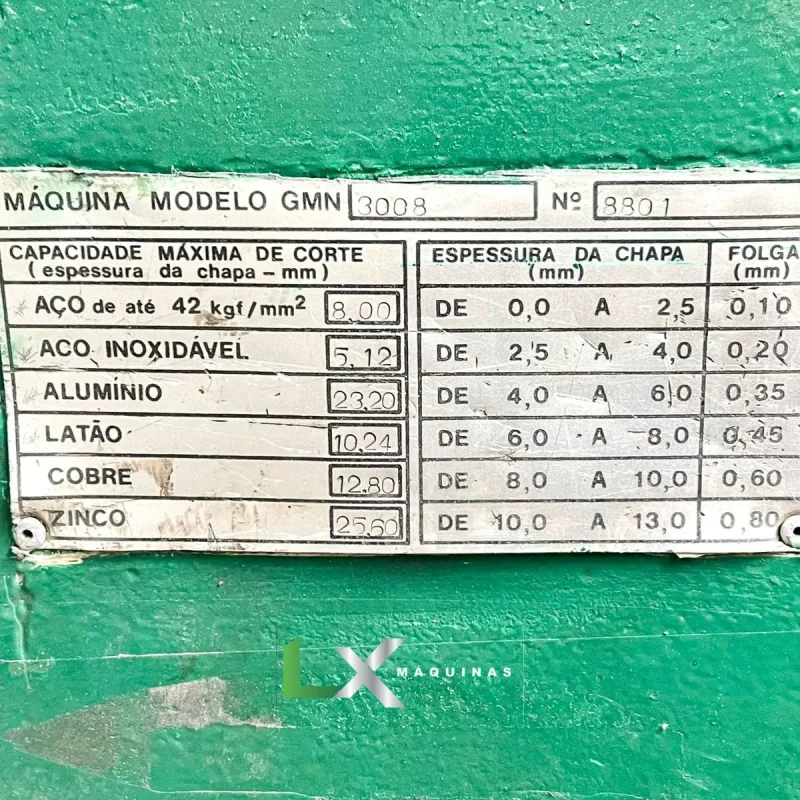 MÁQUINA MODELO GMN 3008 Nº 8801
CAPACIDADE MÁXIMA DE CORTE
(espessura da chapa - mm)
AÇO de até 42 kgf/mm² 8.00
ACO INOXIDÁVEL 5,12
ALUMÍNIO 23.20
LATÃO 10.24
COBRE 12.80
ZINCO 25.60
ESPESSURA DA CHAPA (mm) FOLGA (mm)
DE 0,0 A 2,5 0,10
DE 2,5 A 4,0 0,20
DE 4,0 A 6,0 0,35
DE 6,0 A 8,0 0,45
DE 8,0 A 10,0 0,60
DE 10,0 A 13,0 0,80
LX MÁQUINAS